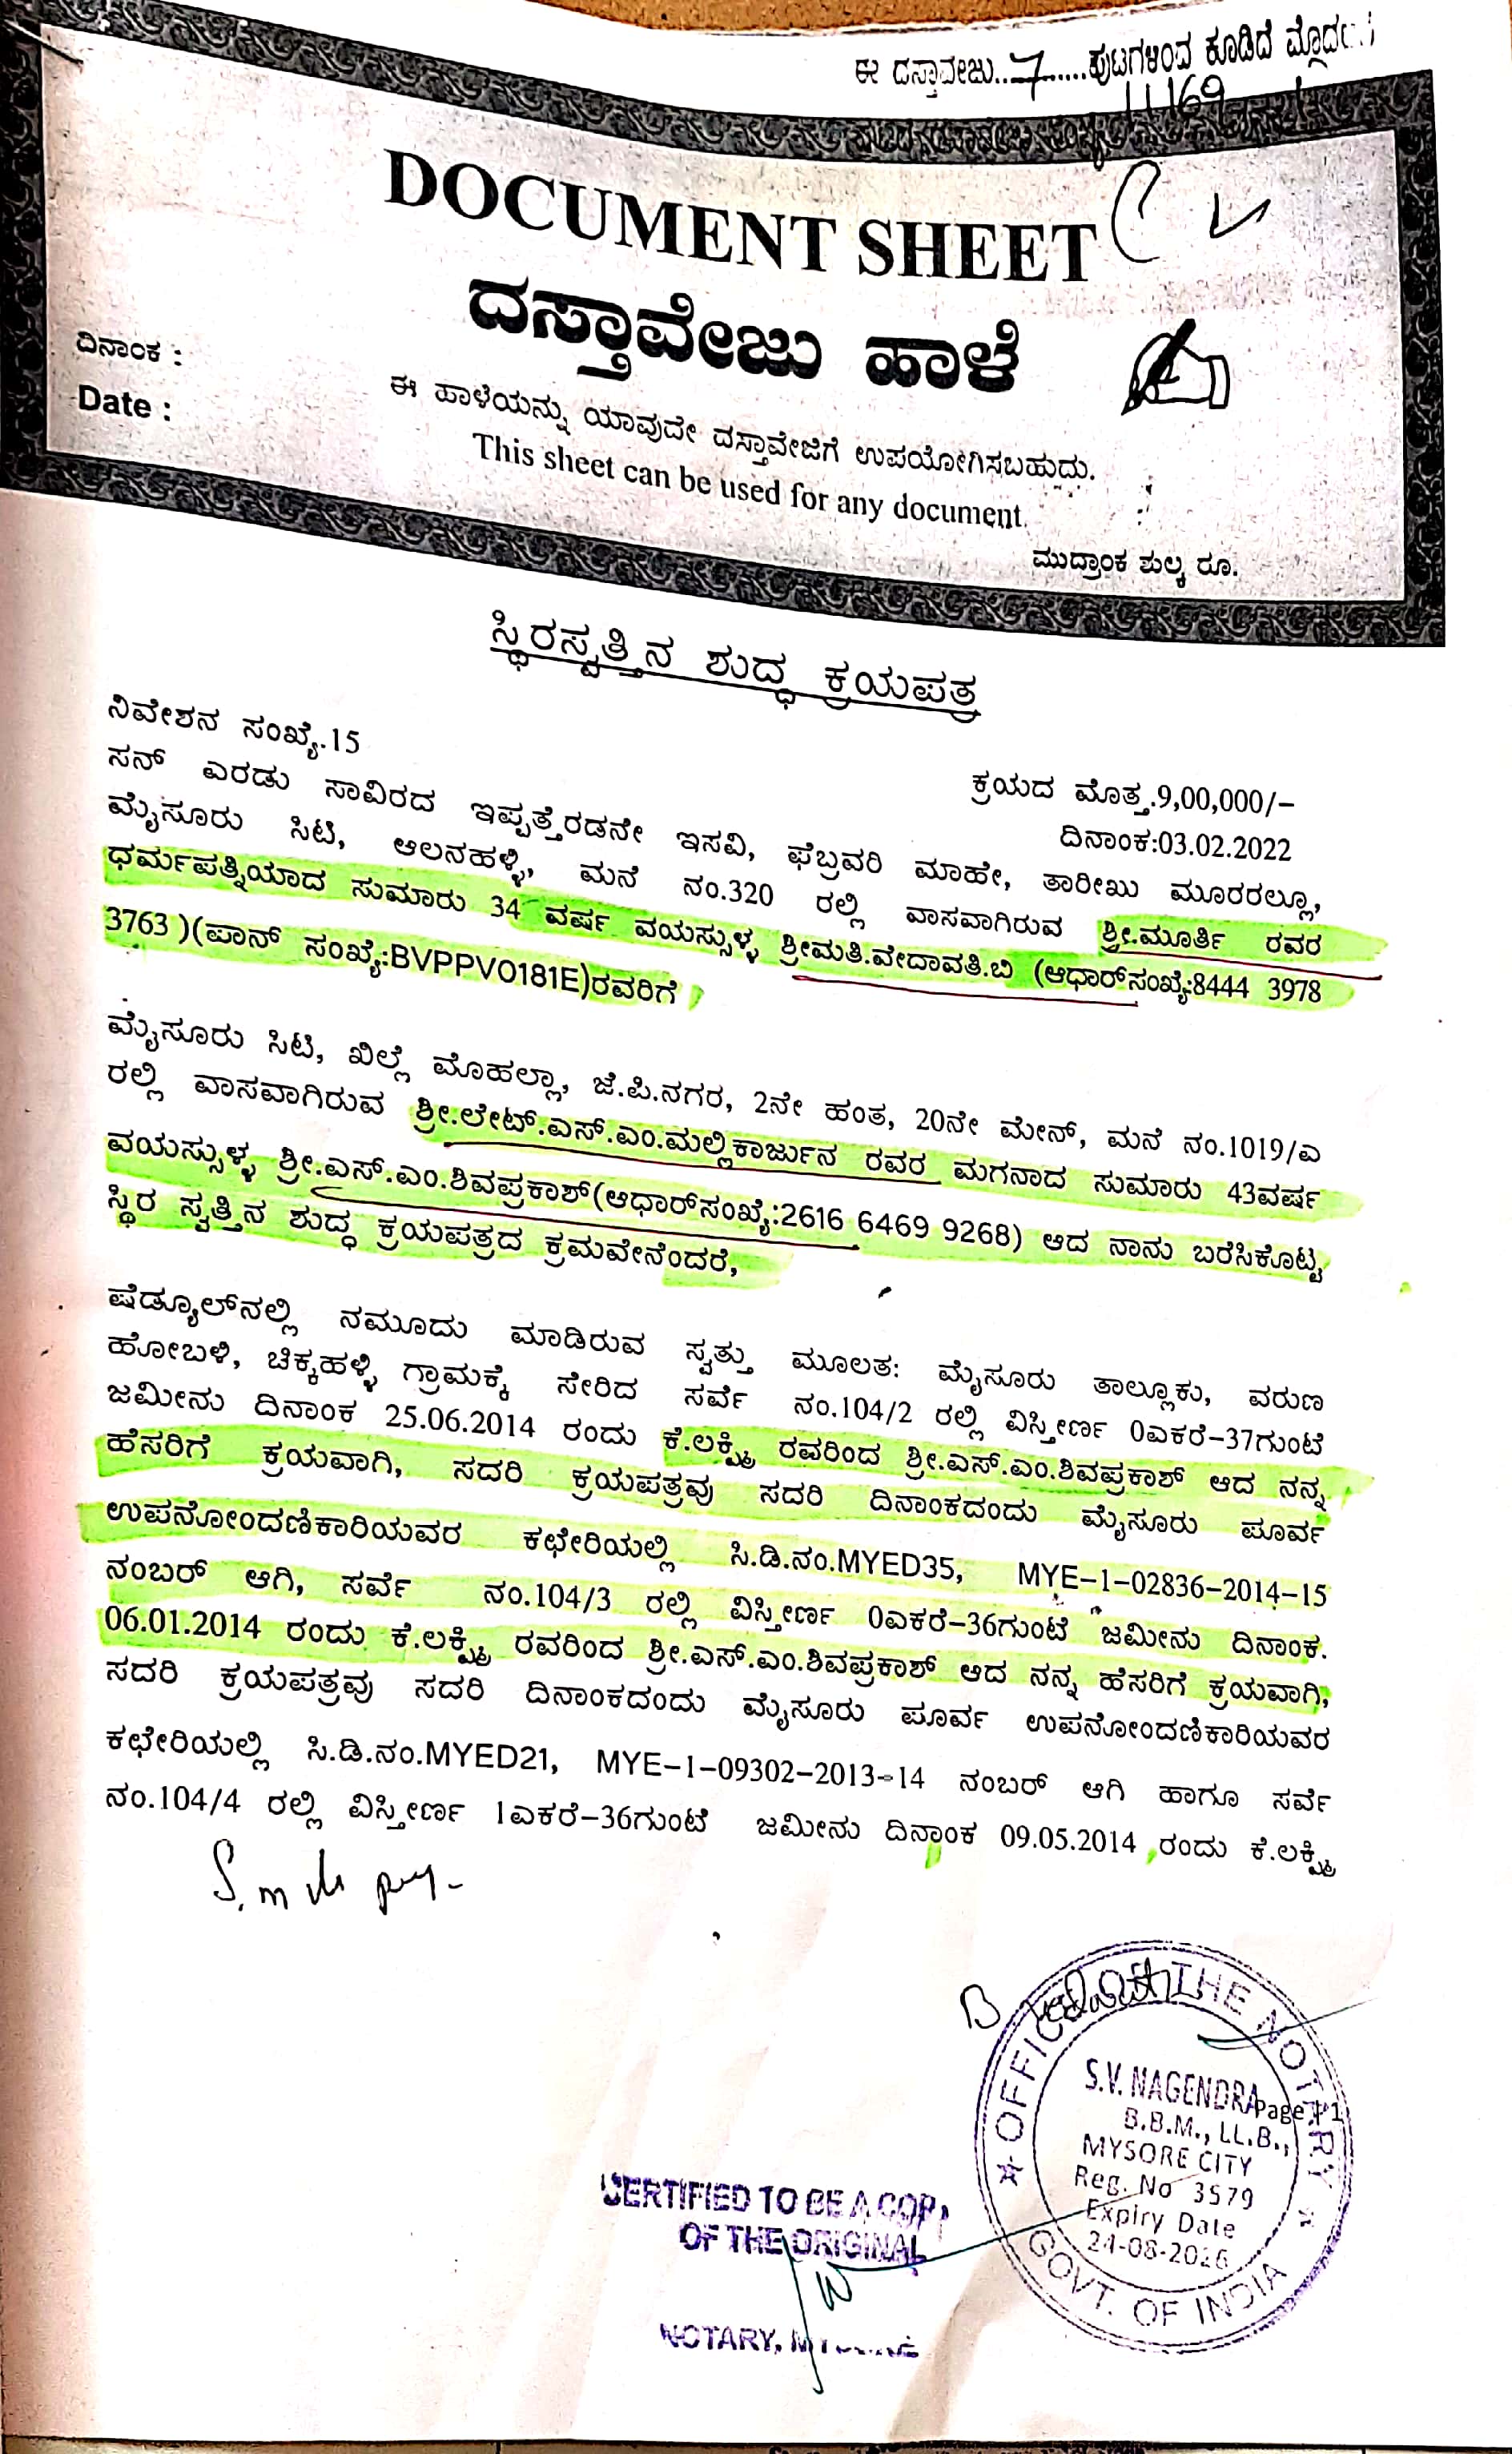 ಈ ದಸ್ತಾವೇಜು..7......ಪುಟಗಳಿಂದ ಕೂಡಿದೆ
11169
DOCUMENT SHEET
ದಸ್ತಾವೇಜು ಹಾಳೆ
ದಿನಾಂಕ :
Date :
ಈ ಹಾಳೆಯನ್ನು ಯಾವುದೇ ದಸ್ತಾವೇಜಿಗೆ ಉಪಯೋಗಿಸಬಹುದು.
This sheet can be used for any document.
ಮುದ್ರಾಂಕ ಶುಲ್ಕ ರೂ.
ಸ್ಥಿರಸ್ವತ್ತಿನ ಶುದ್ಧ ಕ್ರಯಪತ್ರ
ನಿವೇಶನ ಸಂಖ್ಯೆ.15
ಕ್ರಯದ ಮೊತ್ತ.9,00,000/–
ದಿನಾಂಕ:03.02.2022
ಸನ್ ಎರಡು ಸಾವಿರದ ಇಪ್ಪತ್ತೆರಡನೇ ಇಸವಿ, ಫೆಬ್ರವರಿ ಮಾಹೇ, ತಾರೀಖು ಮೂರರಲ್ಲೂ,
ಮೈಸೂರು ಸಿಟಿ, ಆಲನಹಳ್ಳಿ, ಮನೆ ನಂ.320 ರಲ್ಲಿ ವಾಸವಾಗಿರುವ ಶ್ರೀ.ಮೂರ್ತಿ ರವರ
ಧರ್ಮಪತ್ನಿಯಾದ ಸುಮಾರು 34 ವರ್ಷ ವಯಸ್ಸುಳ್ಳ ಶ್ರೀಮತಿ.ವೇದಾವತಿ.ಬಿ (ಆಧಾರ್‌ಸಂಖ್ಯೆ:8444 3978
3763 )(ಪಾನ್ ಸಂಖ್ಯೆ:BVPPV0181E)ರವರಿಗೆ
ಮೈಸೂರು ಸಿಟಿ, ಖಿಲ್ಲೆ ಮೊಹಲ್ಲಾ, ಜೆ.ಪಿ.ನಗರ, 2ನೇ ಹಂತ, 20ನೇ ಮೇನ್, ಮನೆ ನಂ.1019/ಎ
ರಲ್ಲಿ ವಾಸವಾಗಿರುವ ಶ್ರೀ.ಲೇಟ್.ಎಸ್.ಎಂ.ಮಲ್ಲಿಕಾರ್ಜುನ ರವರ ಮಗನಾದ ಸುಮಾರು 43ವರ್ಷ
ವಯಸ್ಸುಳ್ಳ ಶ್ರೀ.ಎಸ್.ಎಂ.ಶಿವಪ್ರಕಾಶ್(ಆಧಾರ್‌ಸಂಖ್ಯೆ:2616 6469 9268) ಆದ ನಾನು ಬರೆಸಿಕೊಟ್ಟ
ಸ್ಥಿರ ಸ್ವತ್ತಿನ ಶುದ್ಧ ಕ್ರಯಪತ್ರದ ಕ್ರಮವೇನೆಂದರೆ,
ಷೆಡ್ಯೂಲ್‌ನಲ್ಲಿ ನಮೂದು ಮಾಡಿರುವ ಸ್ವತ್ತು ಮೂಲತ: ಮೈಸೂರು ತಾಲ್ಲೂಕು, ವರುಣ
ಹೋಬಳಿ, ಚಿಕ್ಕಹಳ್ಳಿ ಗ್ರಾಮಕ್ಕೆ ಸೇರಿದ ಸರ್ವೆ ನಂ.104/2 ರಲ್ಲಿ ವಿಸ್ತೀರ್ಣ 0ಎಕರೆ–37ಗುಂಟೆ
ಜಮೀನು ದಿನಾಂಕ 25.06.2014 ರಂದು ಕೆ.ಲಕ್ಷ್ಮಿ ರವರಿಂದ ಶ್ರೀ.ಎಸ್.ಎಂ.ಶಿವಪ್ರಕಾಶ್ ಆದ ನನ್ನ
ಹೆಸರಿಗೆ ಕ್ರಯವಾಗಿ, ಸದರಿ ಕ್ರಯಪತ್ರವು ಸದರಿ ದಿನಾಂಕದಂದು ಮೈಸೂರು ಪೂರ್ವ
ಉಪನೋಂದಣಿಕಾರಿಯವರ ಕಛೇರಿಯಲ್ಲಿ ಸಿ.ಡಿ.ನಂ.MYED35, MYE–1–02836–2014–15
ನಂಬರ್ ಆಗಿ, ಸರ್ವೆ ನಂ.104/3 ರಲ್ಲಿ ವಿಸ್ತೀರ್ಣ 0ಎಕರೆ–36ಗುಂಟೆ ಜಮೀನು ದಿನಾಂಕ.
06.01.2014 ರಂದು ಕೆ.ಲಕ್ಷ್ಮಿ ರವರಿಂದ ಶ್ರೀ.ಎಸ್.ಎಂ.ಶಿವಪ್ರಕಾಶ್ ಆದ ನನ್ನ ಹೆಸರಿಗೆ ಕ್ರಯವಾಗಿ,
ಸದರಿ ಕ್ರಯಪತ್ರವು ಸದರಿ ದಿನಾಂಕದಂದು ಮೈಸೂರು ಪೂರ್ವ ಉಪನೋಂದಣಿಕಾರಿಯವರ
ಕಛೇರಿಯಲ್ಲಿ ಸಿ.ಡಿ.ನಂ.MYED21, MYE–1–09302–2013–14 ನಂಬರ್ ಆಗಿ ಹಾಗೂ ಸರ್ವೆ
ನಂ.104/4 ರಲ್ಲಿ ವಿಸ್ತೀರ್ಣ 1ಎಕರೆ–36ಗುಂಟೆ ಜಮೀನು ದಿನಾಂಕ 09.05.2014 ರಂದು ಕೆ.ಲಕ್ಷ್ಮಿ
OFFICE OF THE NOTARY
S.V. NAGENDRA
Page | 1
B.B.M., LL.B.,
MYSORE CITY
Reg. No 3579
Expiry Date
24-08-2026
GOVT. OF INDIA
CERTIFIED TO BE A COPY
OF THE ORIGINAL
NOTARY,